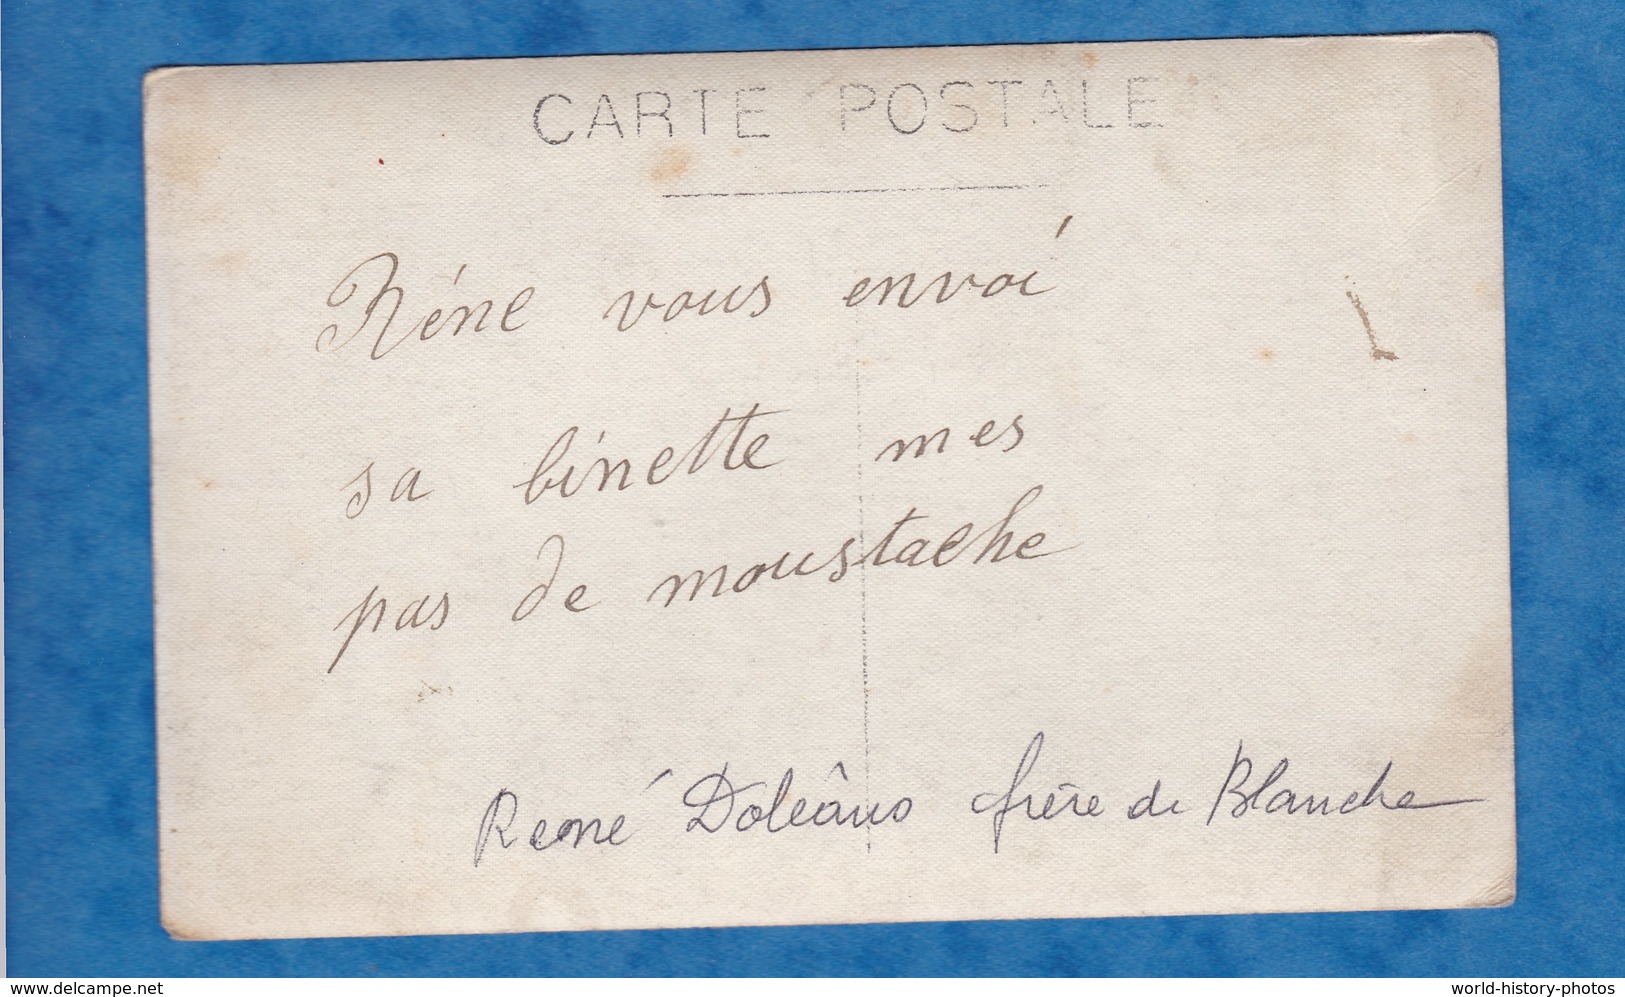 CARTE POSTALE
Réne vous envoi
sa binette mes
pas de moustache
René Doléâns frère de Blanche
www.delcampe.net
world-history-photos